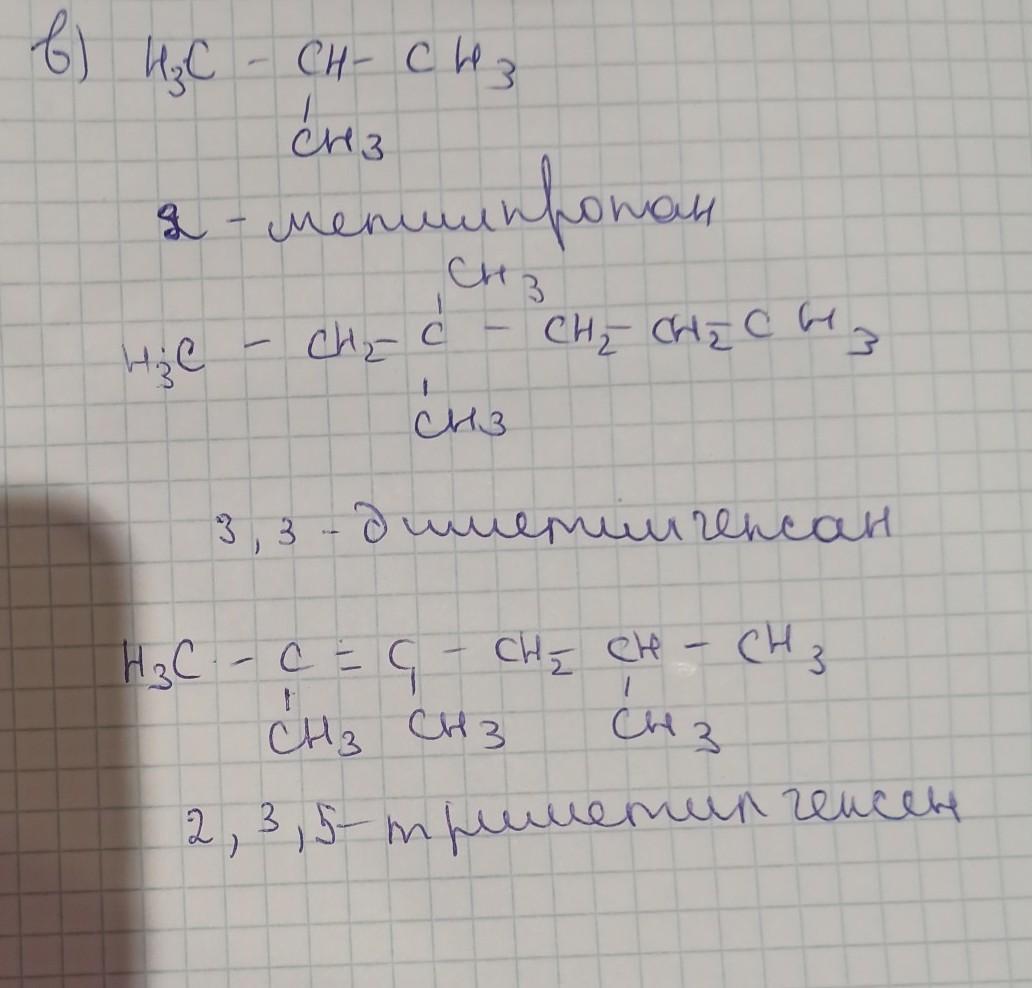 в) H₃C - CH - CH₃
CH₃
2 - метилпропан
CH₃
H₃C - CH₂ - C - CH₂ - CH₂ - CH₃
CH₃
3,3 - диметилгексан
H₃C - C = C - CH₂ - CH - CH₃
CH₃ CH₃ CH₃
2,3,5- триметил гексен